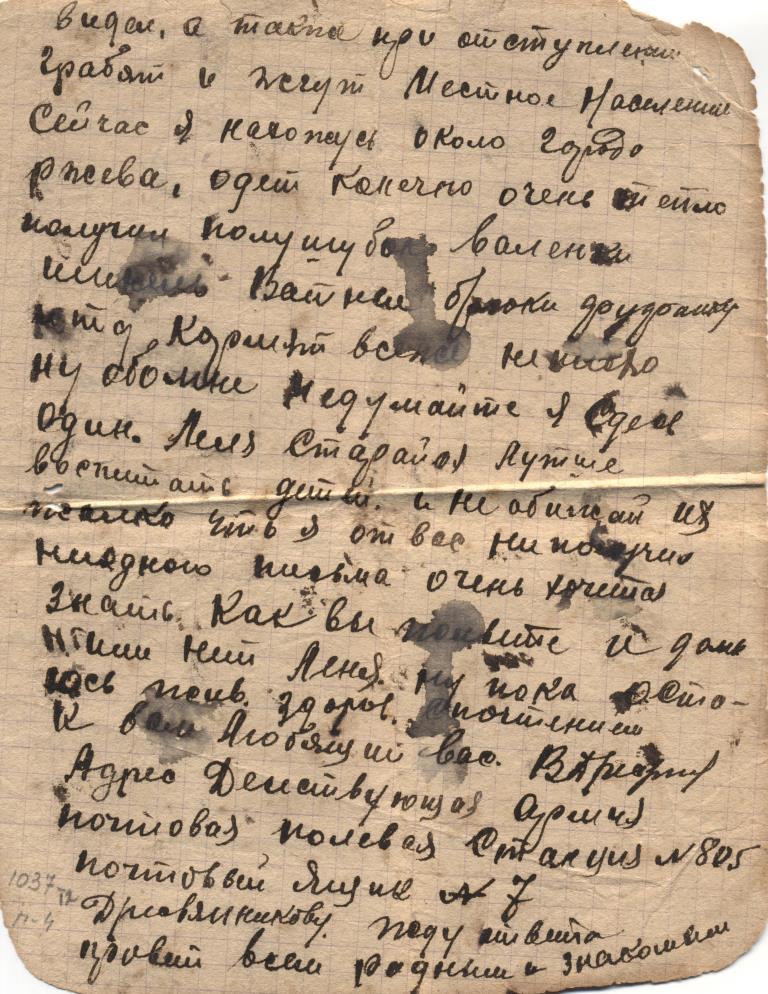 видел, а также при отступлении
грабят и жгут Местное Население
Сейчас я нахожусь около города
ржева, одет конечно очень тепло
получил полушубок валенки
шинель Ватные брюки
и тд Кормят
ну обо мне Недумайте я Сдесь
один. Леля Старайся Лутше
воспитать детей. и не обижай их
жалко что я от вас ни получил
ниодного письма очень хочется
Знать Как вы живете и
Леня. ну пока оста-
юсь жив. здоров. Спочтением
К вам Любящий вас.
Адрес Действующая армия
почтовая полевая Станция №805
почтовый Ящик № 7
жду ответа
привет всем родным и знакомым
1037